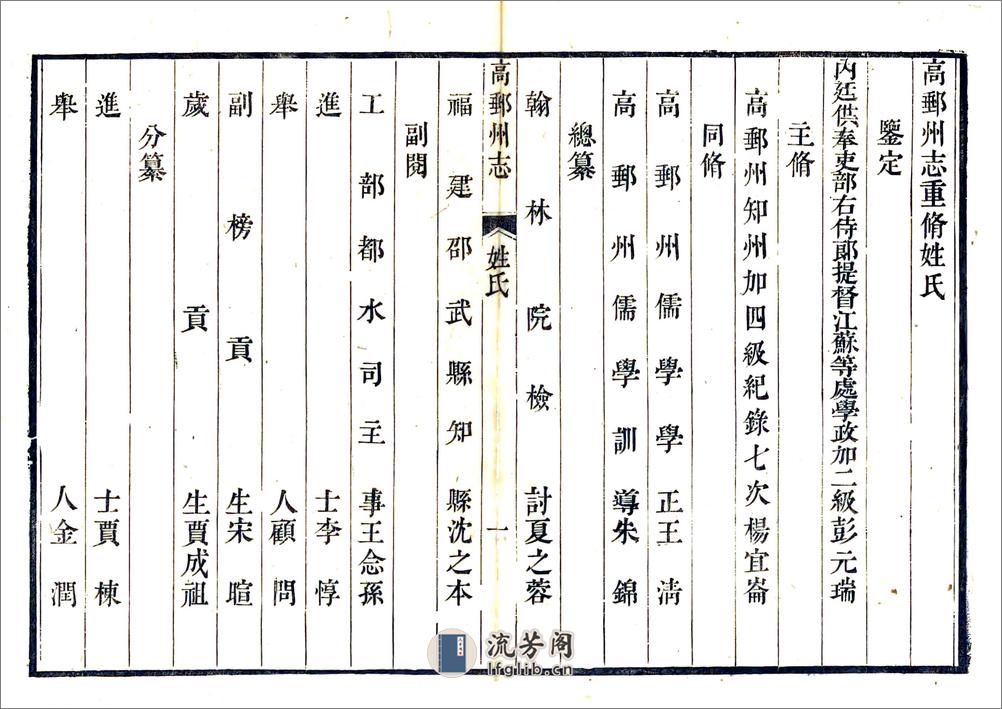 高郵州志重脩姓氏
鑒定
內廷供奉吏部右侍郞提督江蘇等處學政加二級彭元瑞
主脩
高郵州知州加四級紀錄七次楊宜崙
同脩
高郵州儒學學正王淸
高郵州儒學訓導朱錦
總纂
翰林院檢討夏之蓉
高郵州志
姓氏
一
福建邵武縣知縣沈之本
副閱
工部都水司主事王念孫
進士李惇
舉人顧問
副榜貢生宋暄
歲貢生賈成祖
分纂
進士賈棟
舉人金潤
流芳阁
lfglib.cn